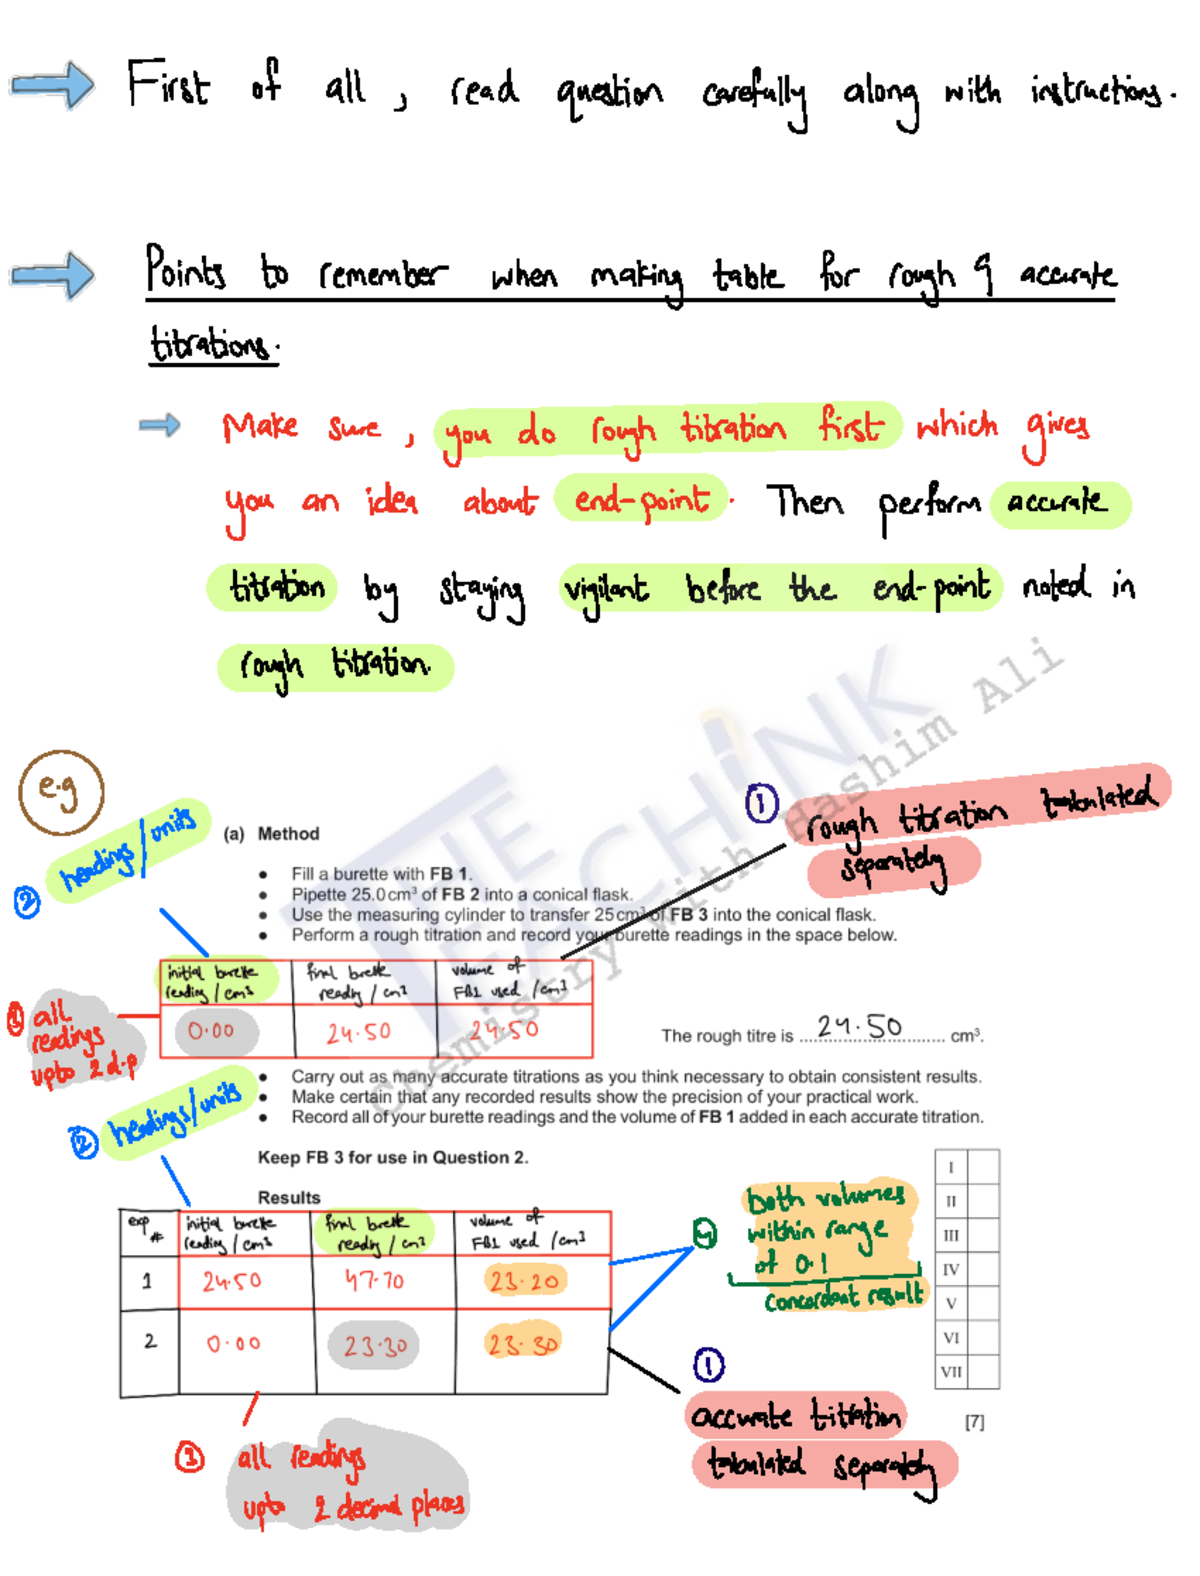 First of all, read question carefully along with instructions.
Points to remember when making table for rough & accurate
titrations.
Make sure, you do rough titration first which gives
you an idea about end-point. Then perform accurate
titration by staying vigilant before the end-point noted in
rough titration.
e.g
① rough titration tabulated
separately
② headings/units
(a) Method
• Fill a burette with FB 1.
• Pipette 25.0 cm³ of FB 2 into a conical flask.
• Use the measuring cylinder to transfer 25 cm³ of FB 3 into the conical flask.
• Perform a rough titration and record your burette readings in the space below.
initial burette reading / cm³ final burette reading / cm³ volume of FB1 used / cm³
0.00 24.50 24.50
③ all
readings
upto 2 d.p
The rough titre is 24.50 cm³.
• Carry out as many accurate titrations as you think necessary to obtain consistent results.
• Make certain that any recorded results show the precision of your practical work.
• Record all of your burette readings and the volume of FB 1 added in each accurate titration.
② headings/units
Keep FB 3 for use in Question 2.
Results
exp # initial burette reading / cm³ final burette reading / cm³ volume of FB1 used / cm³
1 24.50 47.70 23.20
2 0.00 23.30 23.30
④ both volumes
within range
of 0.1
concordant result
I
II
III
IV
V
VI
VII
[7]
① accurate titration
tabulated separately
③ all readings
upto 2 decimal places
THE TEACHINK
Chemistry with Hashim Ali